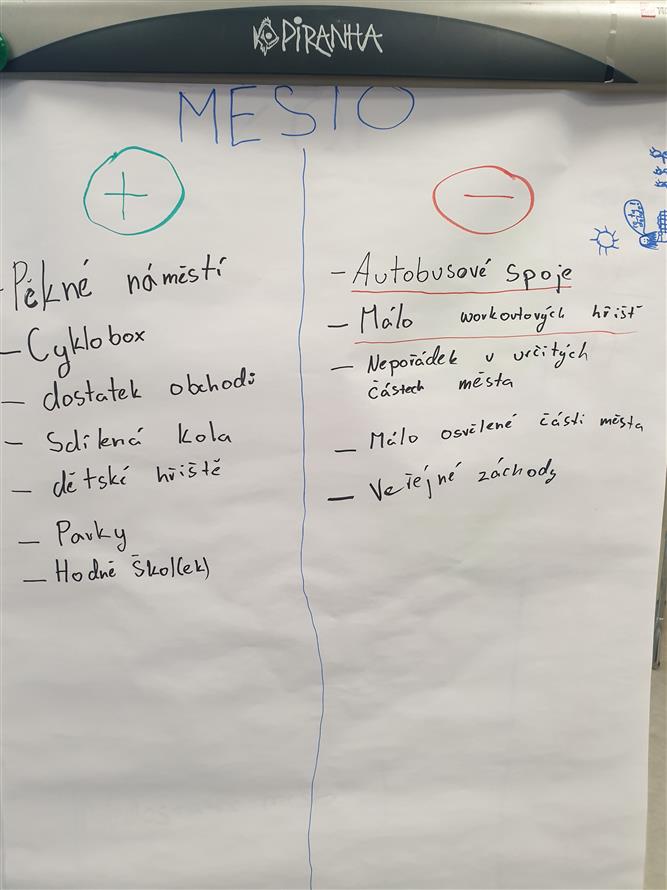 PIRANHA
MĚSTO
+
- Pěkné náměstí
- Cyklobox
- dostatek obchodů
- Sdílená kola
- dětské hřiště
- Parky
- Hodně škol(ek)
-
- Autobusové spoje
- Málo workoutových hřišť
- Nepořádek v určitých
částech města
- Málo osvělené části města
- Veřejné záchody